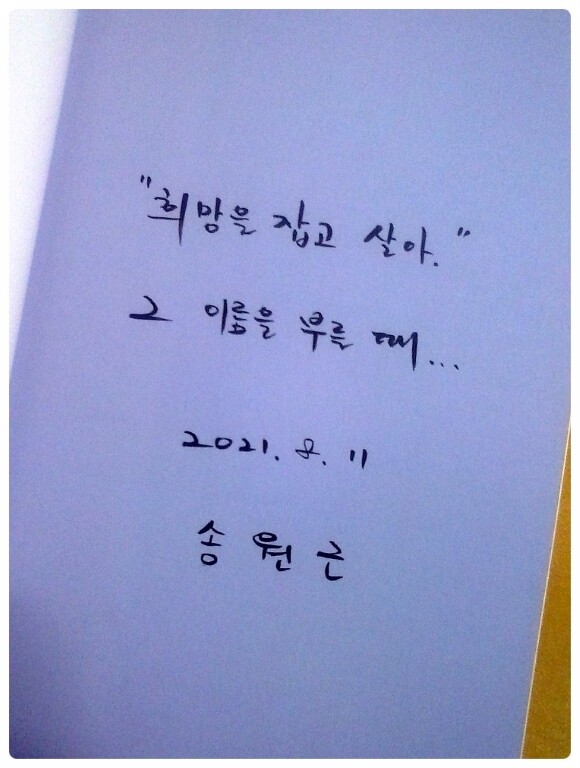 "희망을 잡고 살아."
그 이름을 부를 때...
2021. 8. 11
송원근